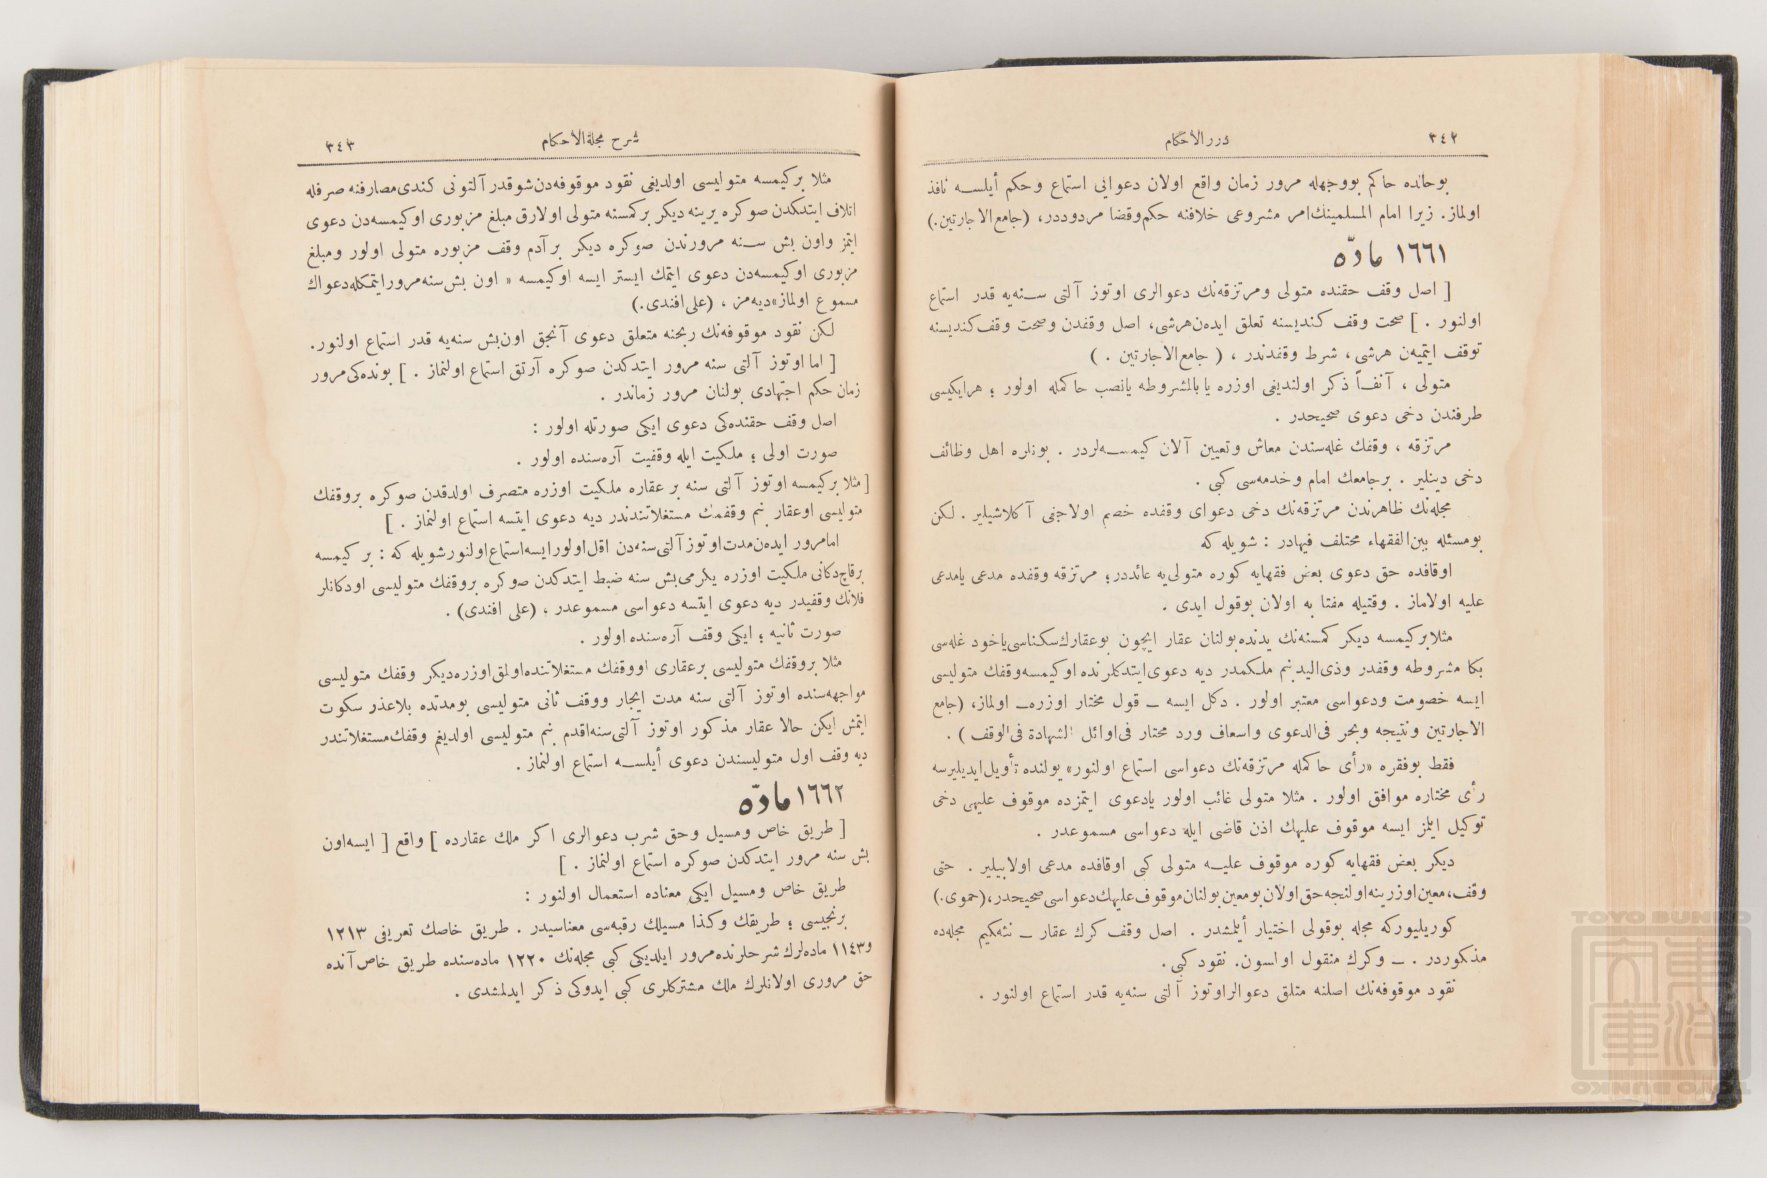 ٣٤٢
درر الأحكام
بوحالده حاكم بووجهله مرور زمان واقع اولان دعوايى استماع وحكم أيلسه نافذ
اولماز. زيرا امام المسلمينك امر مشروعى خلافنه حكم وقضا مردوددر، (جامع الاجارتين.)
١٦٦١ مادّه
[ اصل وقف حقنده متولى ومرتزقه‌نك دعوالرى اوتوز آلتى سنه‌يه قدر استماع
اولنور . ] صحت وقف كنديسنه تعلق ايده‌ن هرشى، اصل وقفدن وصحت وقف كنديسنه
توقف ايتميه‌ن هرشى، شرط وقفدندر ، ( جامع الاجارتين . )
متولى ، آنفاً ذكر اولنديغى اوزره يا بالمشروطه يا نصب حاكمله اولور ؛ هرايكيسى
طرفندن دخى دعوى صحيحدر .
مرتزقه ، وقفك غله‌سندن معاش وتعيين آلان كيمسه‌لردر . بونلره اهل وظائف
دخى دينلير . برجامعك امام وخدمه‌سى كبى .
مجله‌نك ظاهرندن مرتزقه‌نك دخى دعواى وقفده خصم اولاجغى آكلاشيلير . لكن
بومسئله بين الفقهاء مختلف فيهادر : شويله كه
اوقافده حق دعوى بعض فقهايه كوره متولى‌يه عائددر؛ مرتزقه وقفده مدعى يامدعى
عليه اولاماز . وقتيله مفتا به اولان بوقول ايدى .
مثلا بر كيمسه ديكر كمسنه‌نك يدنده بولنان عقار ايچون بوعقارك سكناسى ياخود غله‌سى
بكا مشروطه وقفدر وذى اليد بنم ملكمدر ديه دعوى ايتدكلرنده اوكيمسه وقفك متوليسى
ايسه خصومت ودعواسى معتبر اولور . دكل ايسه ــ قول مختار اوزره ــ اولماز، (جامع
الاجارتين ونتيجه وبحر فى الدعوى واسعاف ورد محتار فى اوائل الشهادة فى الوقف ) .
فقط بوفقره «رأى حاكمله مرتزقه‌نك دعواسى استماع اولنور» يولنده تأويل ايديليرسه
رأى مختاره موافق اولور . مثلا متولى غائب اولور يادعوى ايتمزده موقوف عليهى دخى
توكيل ايلمز ايسه موقوف عليهك اذن قاضى ايله دعواسى مسموعدر .
ديكر بعض فقهايه كوره موقوف عليه متولى كبى اوقافده مدعى اولابيلير . حتى
وقف، معين اوزرينه اولنجه حق اولان بومعين بولنان موقوف عليهك دعواسى صحيحدر، (حموى.)
كوريليوركه مجله بوقولى اختيار أيلمشدر . اصل وقف كرك عقار ــ نته‌كيم مجله‌ده
مذكوردر . ــ وكرك منقول اولسون. نقود كبى.
نقود موقوفه‌نك اصلنه متعلق دعوالر اوتوز آلتى سنه‌يه قدر استماع اولنور .
شرح مجلة الأحكام
٣٤٣
مثلا بر كيمسه متوليسى اولديغى نقود موقوفه‌دن شوقدر آلتونى كندى مصارفنه صرفله
اتلاف ايتدكدن صوكره يرينه ديكر بر كمسنه متولى اولارق مبلغ مزبورى اوكيمسه‌دن دعوى
ايتمز واون بش سنه مرورندن صوكره ديكر بر آدم وقف مزبوره متولى اولور ومبلغ
مزبورى اوكيمسه‌دن دعوى ايتمك ايستر ايسه اوكيمسه « اون بش سنه مرور ايتمكله دعواك
مسموع اولماز» ديه‌مز ، (على افندى.)
لكن نقود موقوفه‌نك ربحنه متعلق دعوى آنجق اون بش سنه‌يه قدر استماع اولنور.
[ اما اوتوز آلتى سنه مرور ايتدكدن صوكره آرتق استماع اولنماز . ] بونده‌كى مرور
زمان حكم اجتهادى بولنان مرور زماندر .
اصل وقف حقنده‌كى دعوى ايكى صورتله اولور :
صورت اولى ؛ ملكيت ايله وقفيت آره‌سنده اولور .
[ مثلا بر كيمسه اوتوز آلتى سنه بر عقاره ملكيت اوزره متصرف اولدقدن صوكره بروقفك
متوليسى اوعقار بنم وقفمك مستغلاتندندر ديه دعوى ايتسه استماع اولنماز . ]
امامرور ايده‌ن مدت اوتوز آلتى سنه‌دن اقل اولور ايسه استماع اولنور شويله كه : بر كيمسه
برقاچ دكانى ملكيت اوزره يكرمى بش سنه ضبط ايتدكدن صوكره بروقفك متوليسى اودكانلر
فلانك وقفيدر ديه دعوى ايتسه دعواسى مسموعدر ، (على افندى) .
صورت ثانيه ؛ ايكى وقف آره‌سنده اولور .
مثلا بروقفك متوليسى برعقارى اووقفك مستغلاتنده اولمق اوزره ديكر وقفك متوليسى
مواجهه‌سنده اوتوز آلتى سنه مدت ايجار ووقف ثانى متوليسى بومدتده بلاعذر سكوت
ايتمش ايكن حالا عقار مذكور اوتوز آلتى سنه اقدم بنم متوليسى اولديغم وقفك مستغلاتندر
ديه وقف اول متوليسندن دعوى أيلسه استماع اولنماز .
١٦٦٢ مادّه
[ طريق خاص ومسيل وحق شرب دعوالرى اكر ملك عقارده ] واقع [ ايسه اون
بش سنه مرور ايتدكدن صوكره استماع اولنماز . ]
طريق خاص ومسيل ايكى معناده استعمال اولنور :
برنجيسى ؛ طريقك وكذا مسيلك رقبه‌سى معناسيدر . طريق خاصك تعريفى ١٢١٣
و١١٤٣ ماده‌لرك شرحلرنده مرور ايلديكى كبى مجله‌نك ١٢٢٠ ماده‌سنده طريق خاص آنده
حق مرورى اولانلرك ملك مشتركلرى كبى ايدوكى ذكر ايدلمشدى .
TOYO BUNKO
東洋文庫
TOYO BUNKO